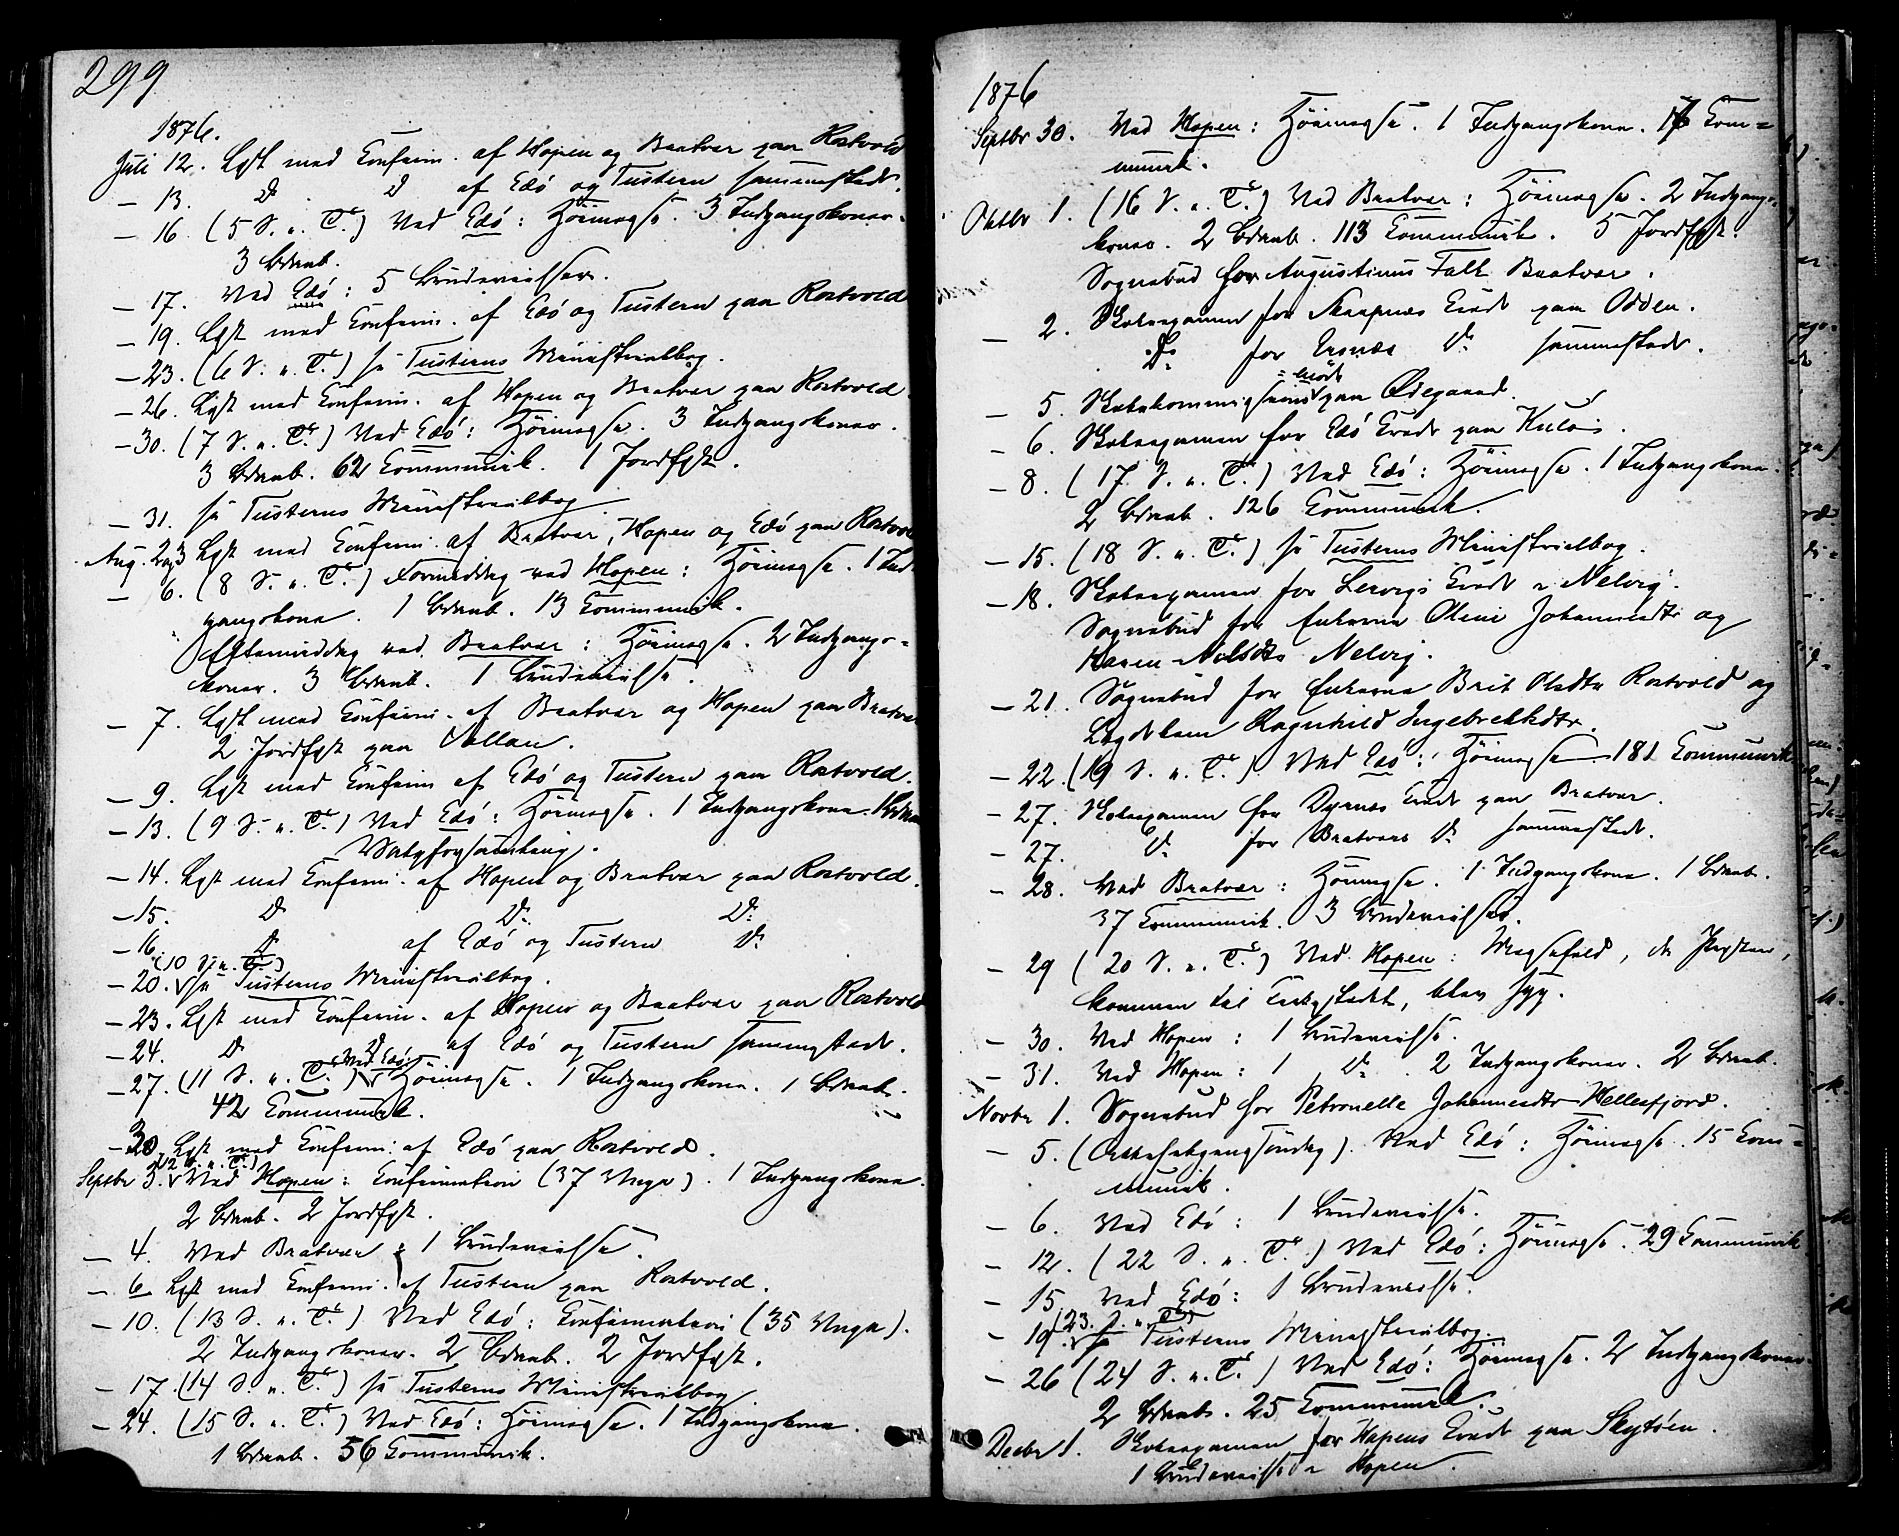 299
1876.
Juli 12. Læst med Confirm. af Hopen og Bratvær paa Rostvold
— 13. Do Do af Edö og Tustern sammesteds.
— 16. (5 S. e. Tr.) Ved Edö: Höimesse. 3 Indgangskoner.
3 Börneb.
— 17. Ved Edö: 5 Brudevielser.
— 19. Læst med Confirm. af Edö og Tustern paa Rostvold
— 23. (6 S. e. Tr.) se Tusterns Ministerialbog.
— 26. Læst med Confirm. af Hopen og Bratvær paa Rostvold.
— 30. (7 S. e. Tr.) Ved Edö: Höimesse. 3 Indgangskoner.
3 Börneb. 62 Communik. 1 Jordfest.
— 31. se Tusterns Ministerialbog
Aug. 2og3 Læst med Confirm. af Bratvær, Hopen og Edö paa Rostvold
— 6. (8 S. e. Tr.) Formiddag ved Hopen: Höimesse. 1 Ind-
gangskone. 1 Börneb. 13 Communik.
Eftermiddag ved Bratvær: Höimesse. 2 Indgangs-
koner. 3 Börneb. 1 Brudevielse.
— 7. Læst med Confirm. af Bratvær og Hopen paa Bratvær
2 Jordfest paa Vollan.
— 9. Læst med Confirm af Edö og Tustern paa Rostvold.
— 13. (9 S. e. Tr.) Ved Edö: Höimesse. 1 Indgangskone. 1 Börneb
Valgforsamling.
— 14. Læst med Confirm. af Hopen og Bratvær paa Rostvold.
— 15. Do Do Do
— 16. Do af Edö og Tustern Do
(10 S. e. Tr.)
— 20. se Tusterns Ministerialbog.
— 23. Læst med Confirm. af Hopen og Bratvær paa Rostvold
— 24. Do Do af Edö og Tustern sammesteds.
— 27. (11 S. e. Tr.) Ved Edö: Höimesse. 1 Indgangskone. 1 Börneb.
42 Communik.
— 30. Læst med Confirm. af Edö paa Rostvold.
Septbr 3. (12 S. e. Tr.) Ved Hopen: Confirmation (37 Unge). 1 Indgangskone.
2 Börneb. 2 Jordfest.
— 4. Ved Bratvær: 1 Brudevielse.
— 6 Læst med Confirm. af Tustern paa Rostvold.
— 10. (13 S. e. Tr.) Ved Edö: Confirmation (35 Unge).
2 Indgangskoner. 2 Börneb. 2 Jordfest.
— 17. (14 S. e. Tr.) se Tusterns Ministerialbog
— 24. (15 S. e. Tr.) Ved Edö: Höimesse. 1 Indgangskone.
1 Börneb. 56 Communik.
1876
Septbr 30. Ved Hopen: Höimesse. 1 Indgangskone. Com=
munik.
Oktbr 1. (16 S. e. Tr.) Ved Bratvær: Höimesse. 2 Indgangs-
koner. 2 Börneb. 113 Communik. 5 Jordfest.
Sognebud for Augustinus Falk Bratvær.
— 2. Skoleexamen for Kreds paa Odden.
Do for Ersnæs Do sammesteds.
— 5. Skolekommissionsmöde paa Ödegaard.
— 6. Skoleexamen for Edö Kreds paa Kulöi.
— 8. (17. S. e. Tr.) Ved Edö: Höimesse. 1 Indgangskone.
2 Börneb. 126 Communik.
— 15. (18 S. e. Tr.) se Tusterns Ministerialbog.
— 18. Skoleexamen for Lervigs Kreds i Nelvig.
Sognebud for Enkerne Oline Johannesdtr og
Karen Nilsdtr Nelvig.
— 21. Sognebud for Enkerne Brit Olsdtr Rostvold og
Lægdslem Ragnhild Ingebrektsdtr.
— 22. (19 S. e. Tr.) Ved Edö: Höimesse. 181 Communik
— 27. Skoleexamen for Dyrnæs Kreds paa Bratvær.
— 27. Do for Bratvær Do sammesteds.
— 28. Ved Bratvær: Höimesse. 1 Indgangskone. 1 Börneb.
37 Communik. 3 Brudevielser.
— 29 (20 S. e. Tr.) Ved Hopen: Messefald, da Præsten,
kommen til Kirkestedet, blev syg.
— 30. Ved Hopen: 1 Brudevielse.
— 31. Ved Hopen: 1 Do. 2 Indgangskoner. 2 Börneb.
Novbr 1. Sognebud for Petronelle Johannesdtr Hellesfjord.
— 5. ( ). Ved Edö: Höimesse. 15 Com=
munik.
— 6. Ved Edö: 1 Brudevielse.
— 12. (22 S. e. Tr.) Ved Edö: Höimesse. 29 Communik
— 15. Ved Edö: 1 Brudevielse.
— 19. (23. S. e. Tr.) se Tusterns Ministerialbog.
— 26 (24 S. e. Tr.) Ved Edö: Höimesse. 2 Indgangskoner.
2 Börneb. 25 Communik.
Decbr 1. Skoleexamen for Hopens Kreds paa Skytöen.
1 Brudevielse i Hopen.